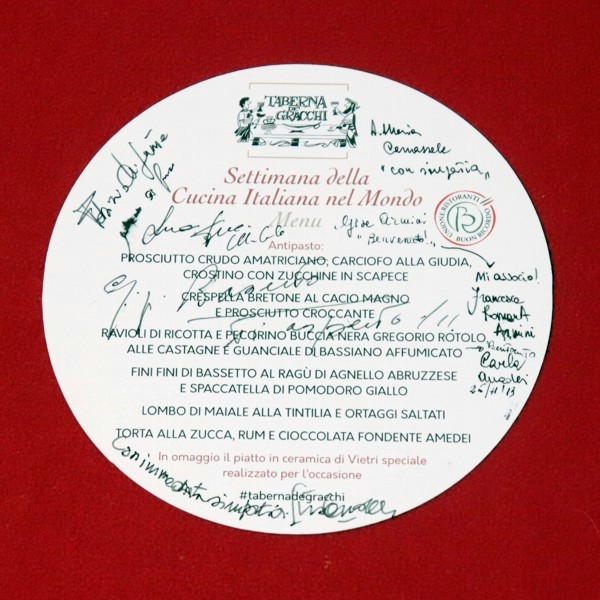 TABERNA
DE
GRACCHI
Settimana della
Cucina Italiana nel Mondo
Menu
UNIONE RISTORANTI BUON RICORDO
"con simpatia"
"Benvenuto!"
Antipasto:
PROSCIUTTO CRUDO AMATRICIANO, CARCIOFO ALLA GIUDIA,
CROSTINO CON ZUCCHINE IN SCAPECE
CRESPELLA BRETONE AL CACIO MAGNO
E PROSCIUTTO CROCCANTE
RAVIOLI DI RICOTTA E PECORINO BUCCIA NERA GREGORIO ROTOLO
ALLE CASTAGNE E GUANCIALE DI BASSIANO AFFUMICATO
FINI FINI DI BASSETTO AL RAGÙ DI AGNELLO ABRUZZESE
E SPACCATELLA DI POMODORO GIALLO
LOMBO DI MAIALE ALLA TINTILIA E ORTAGGI SALTATI
TORTA ALLA ZUCCA, RUM E CIOCCOLATA FONDENTE AMEDEI
In omaggio il piatto in ceramica di Vietri speciale
realizzato per l'occasione
#tabernadegracchi
Mi associo!
Francesca
Romana
Carla
Con immediata simpatia